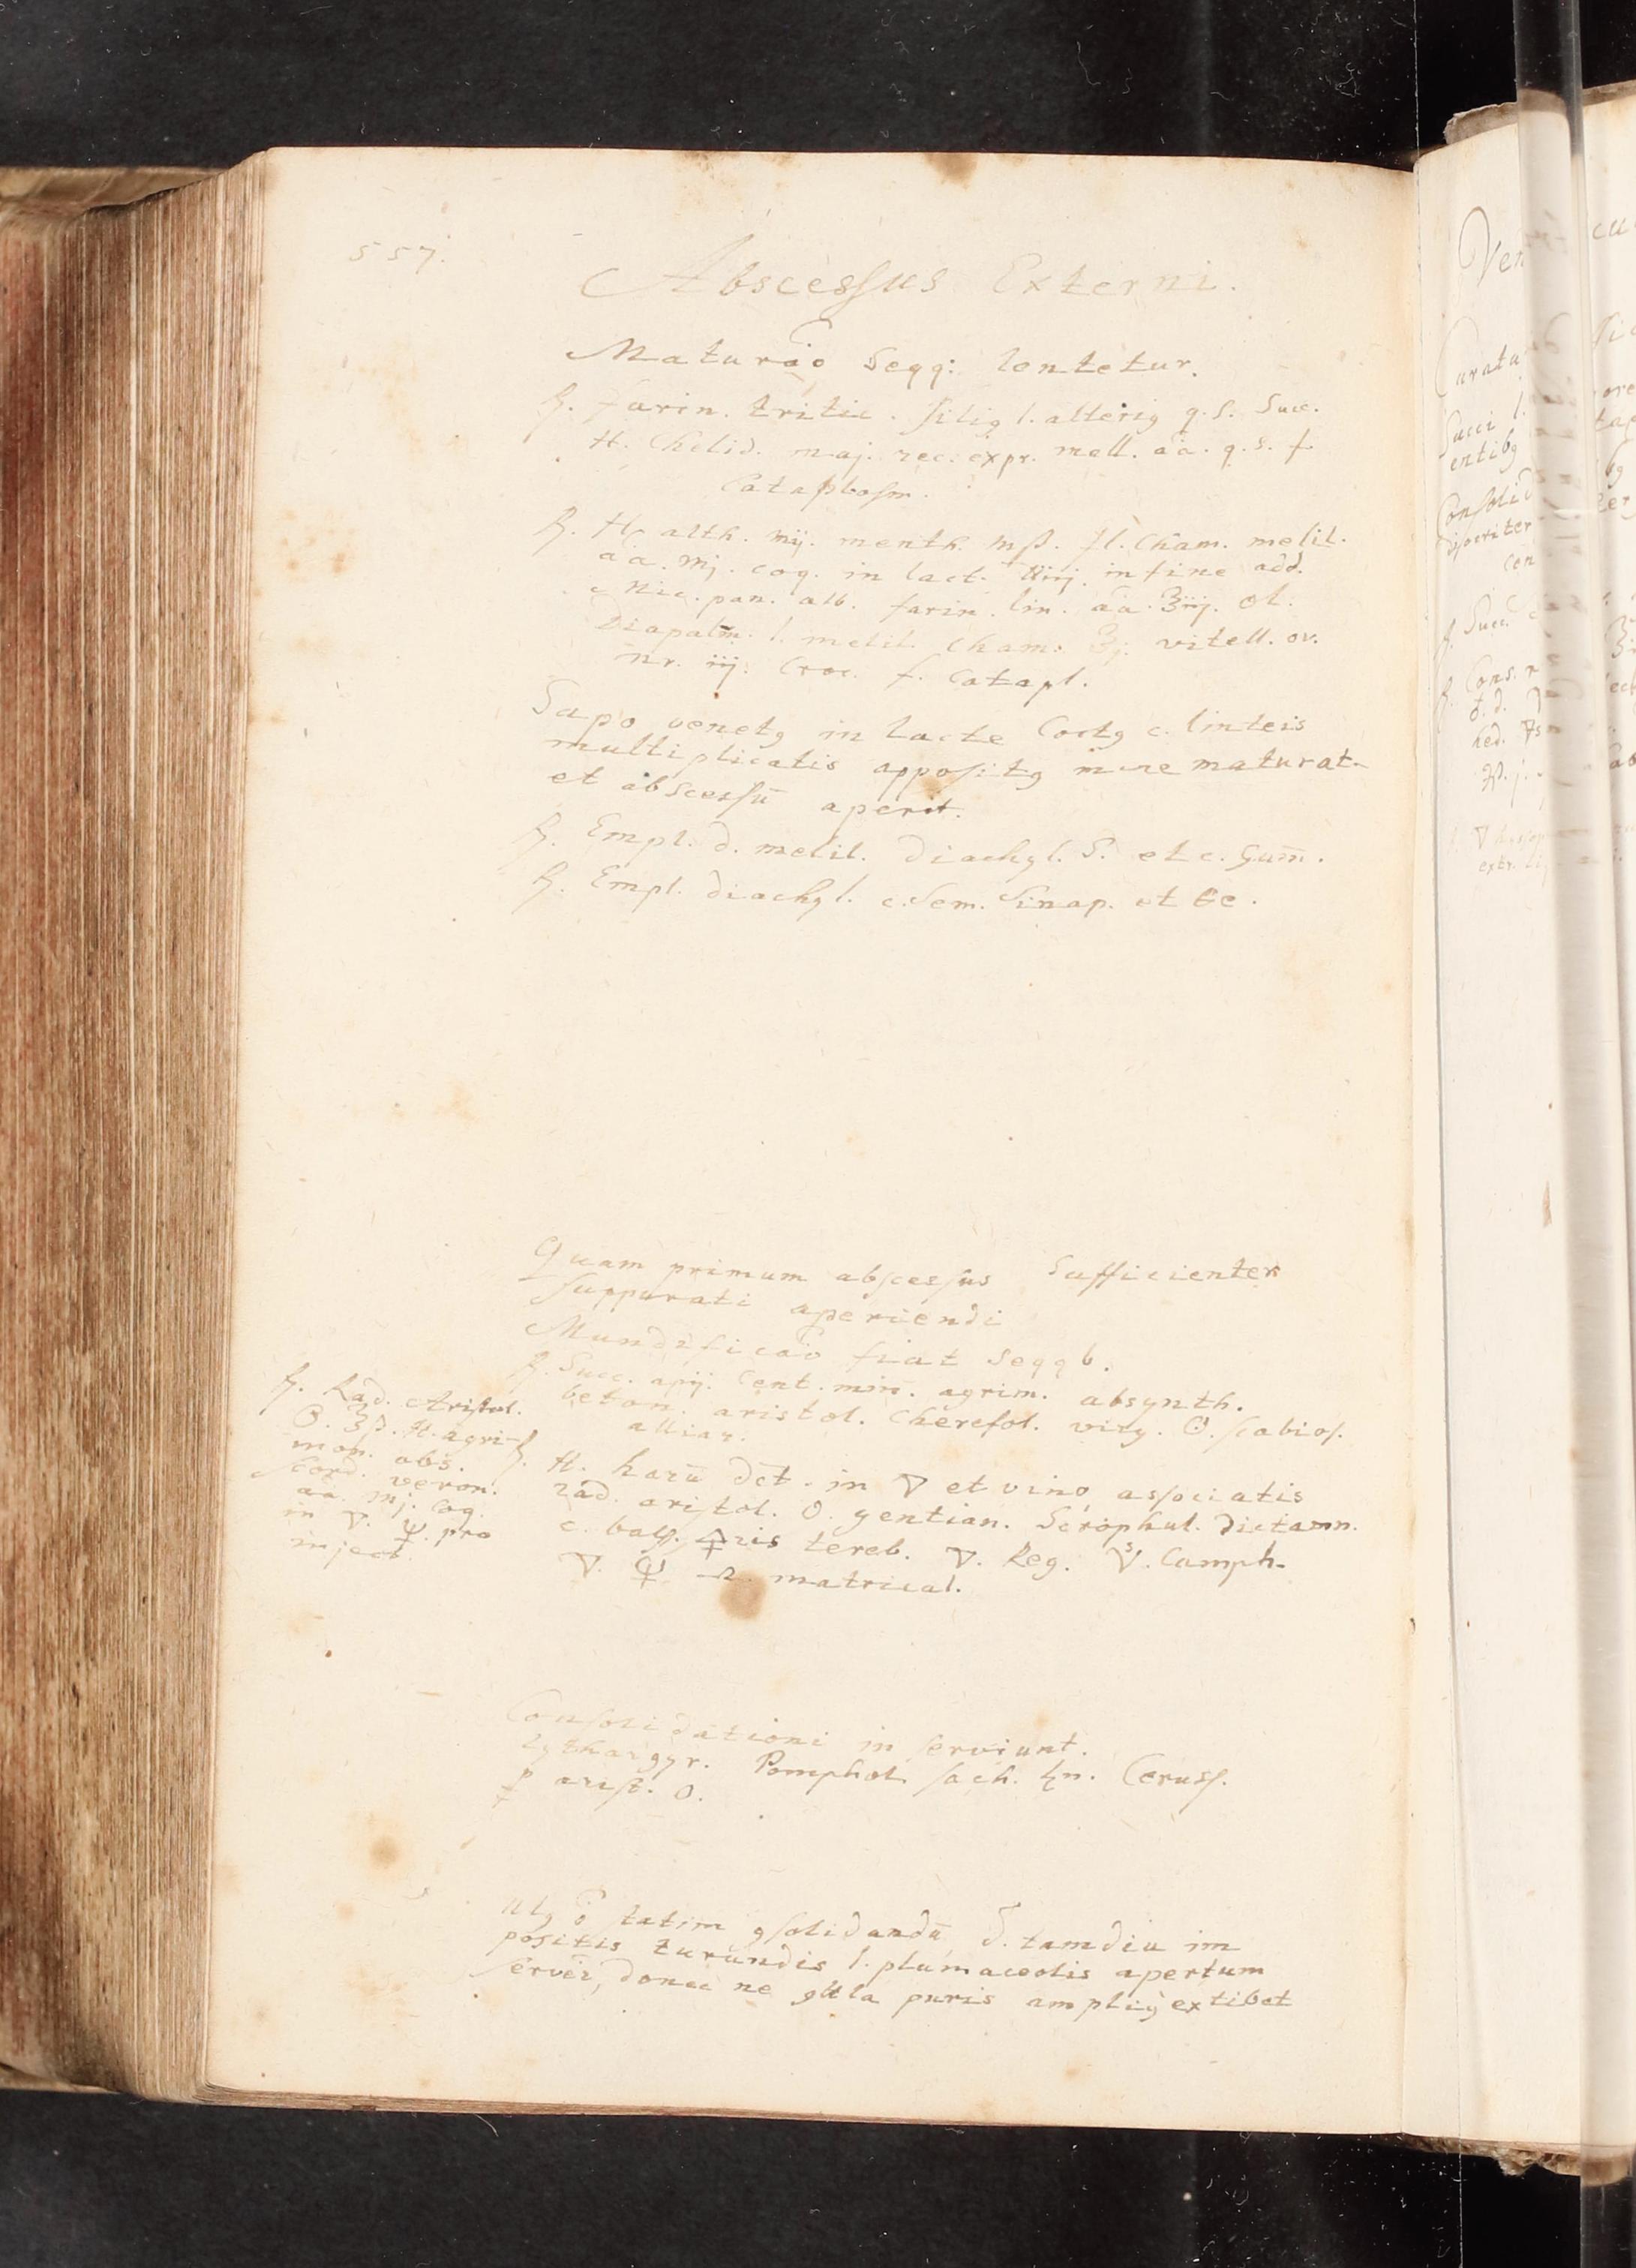 557.
Abscessus Externi.
Maturaõ Seqq: tentetur.
℞. farin. tritic. siligꝫ l. alterigꝫ q. s. Succ.
H. Chelid. maj. rec. expr. mell. aa. q. s. f.
Cataplasm.
℞. H. alth. mij. menth. mß. fl. Cham. melil.
aa. mj. coq. in lact. ℔iij. in fine add.
Mic. pan. alb. farin. lin. aa. ℥iij. ol.
Diapalm. l. melil. Cham. ℥j. vitell. ov.
nr. iij. Croc. f. Catapl.
Sapo venetꝫ in lacte Coctꝫ c. linteis
multiplicatis appositꝫ mire maturat
et abscessū aperit.
℞. Empl. d. melil. diachyl. S. et c. Gum̄.
℞. Empl. diachyl. c. Sem. Sinap. et &c.
Quam primum abscessus Sufficienter
suppurati aperiendi
Mundificaõ fiat Seqqb.
℞. Succ. apij. Cent. min. agrim. absynth.
beton. aristol. Cherefol. virg. ☉. scabios.
alliar.
℞. H. harū dct. in ▽ et vino associatis
rad. aristol. O. gentian. Scrophul. dictamn.
c. bals. 🜍ris tereb. ▽. Reg. ▽. Camph.
▽. ☿ matrical.
℞. Rad. Aristol.
O. H. agri-
mon. abs.
scord. veron.
aa. mj. coq.
in ▽. ☿. pro
inject.
Consolidationi in serviunt.
Lythargyr. Pomphol. sach. ♄n. Ceruss.
arist. O.
statim ꝯsolidandū S. tamdiu im
positis turundis l. plumaceolis apertum
servēr, donec ne gutta puris ampligꝫ extibet